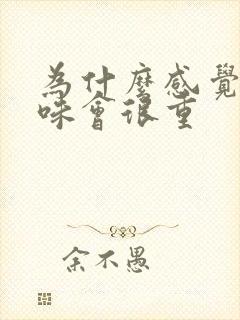 為什麼感覺
味會很重
余不愚